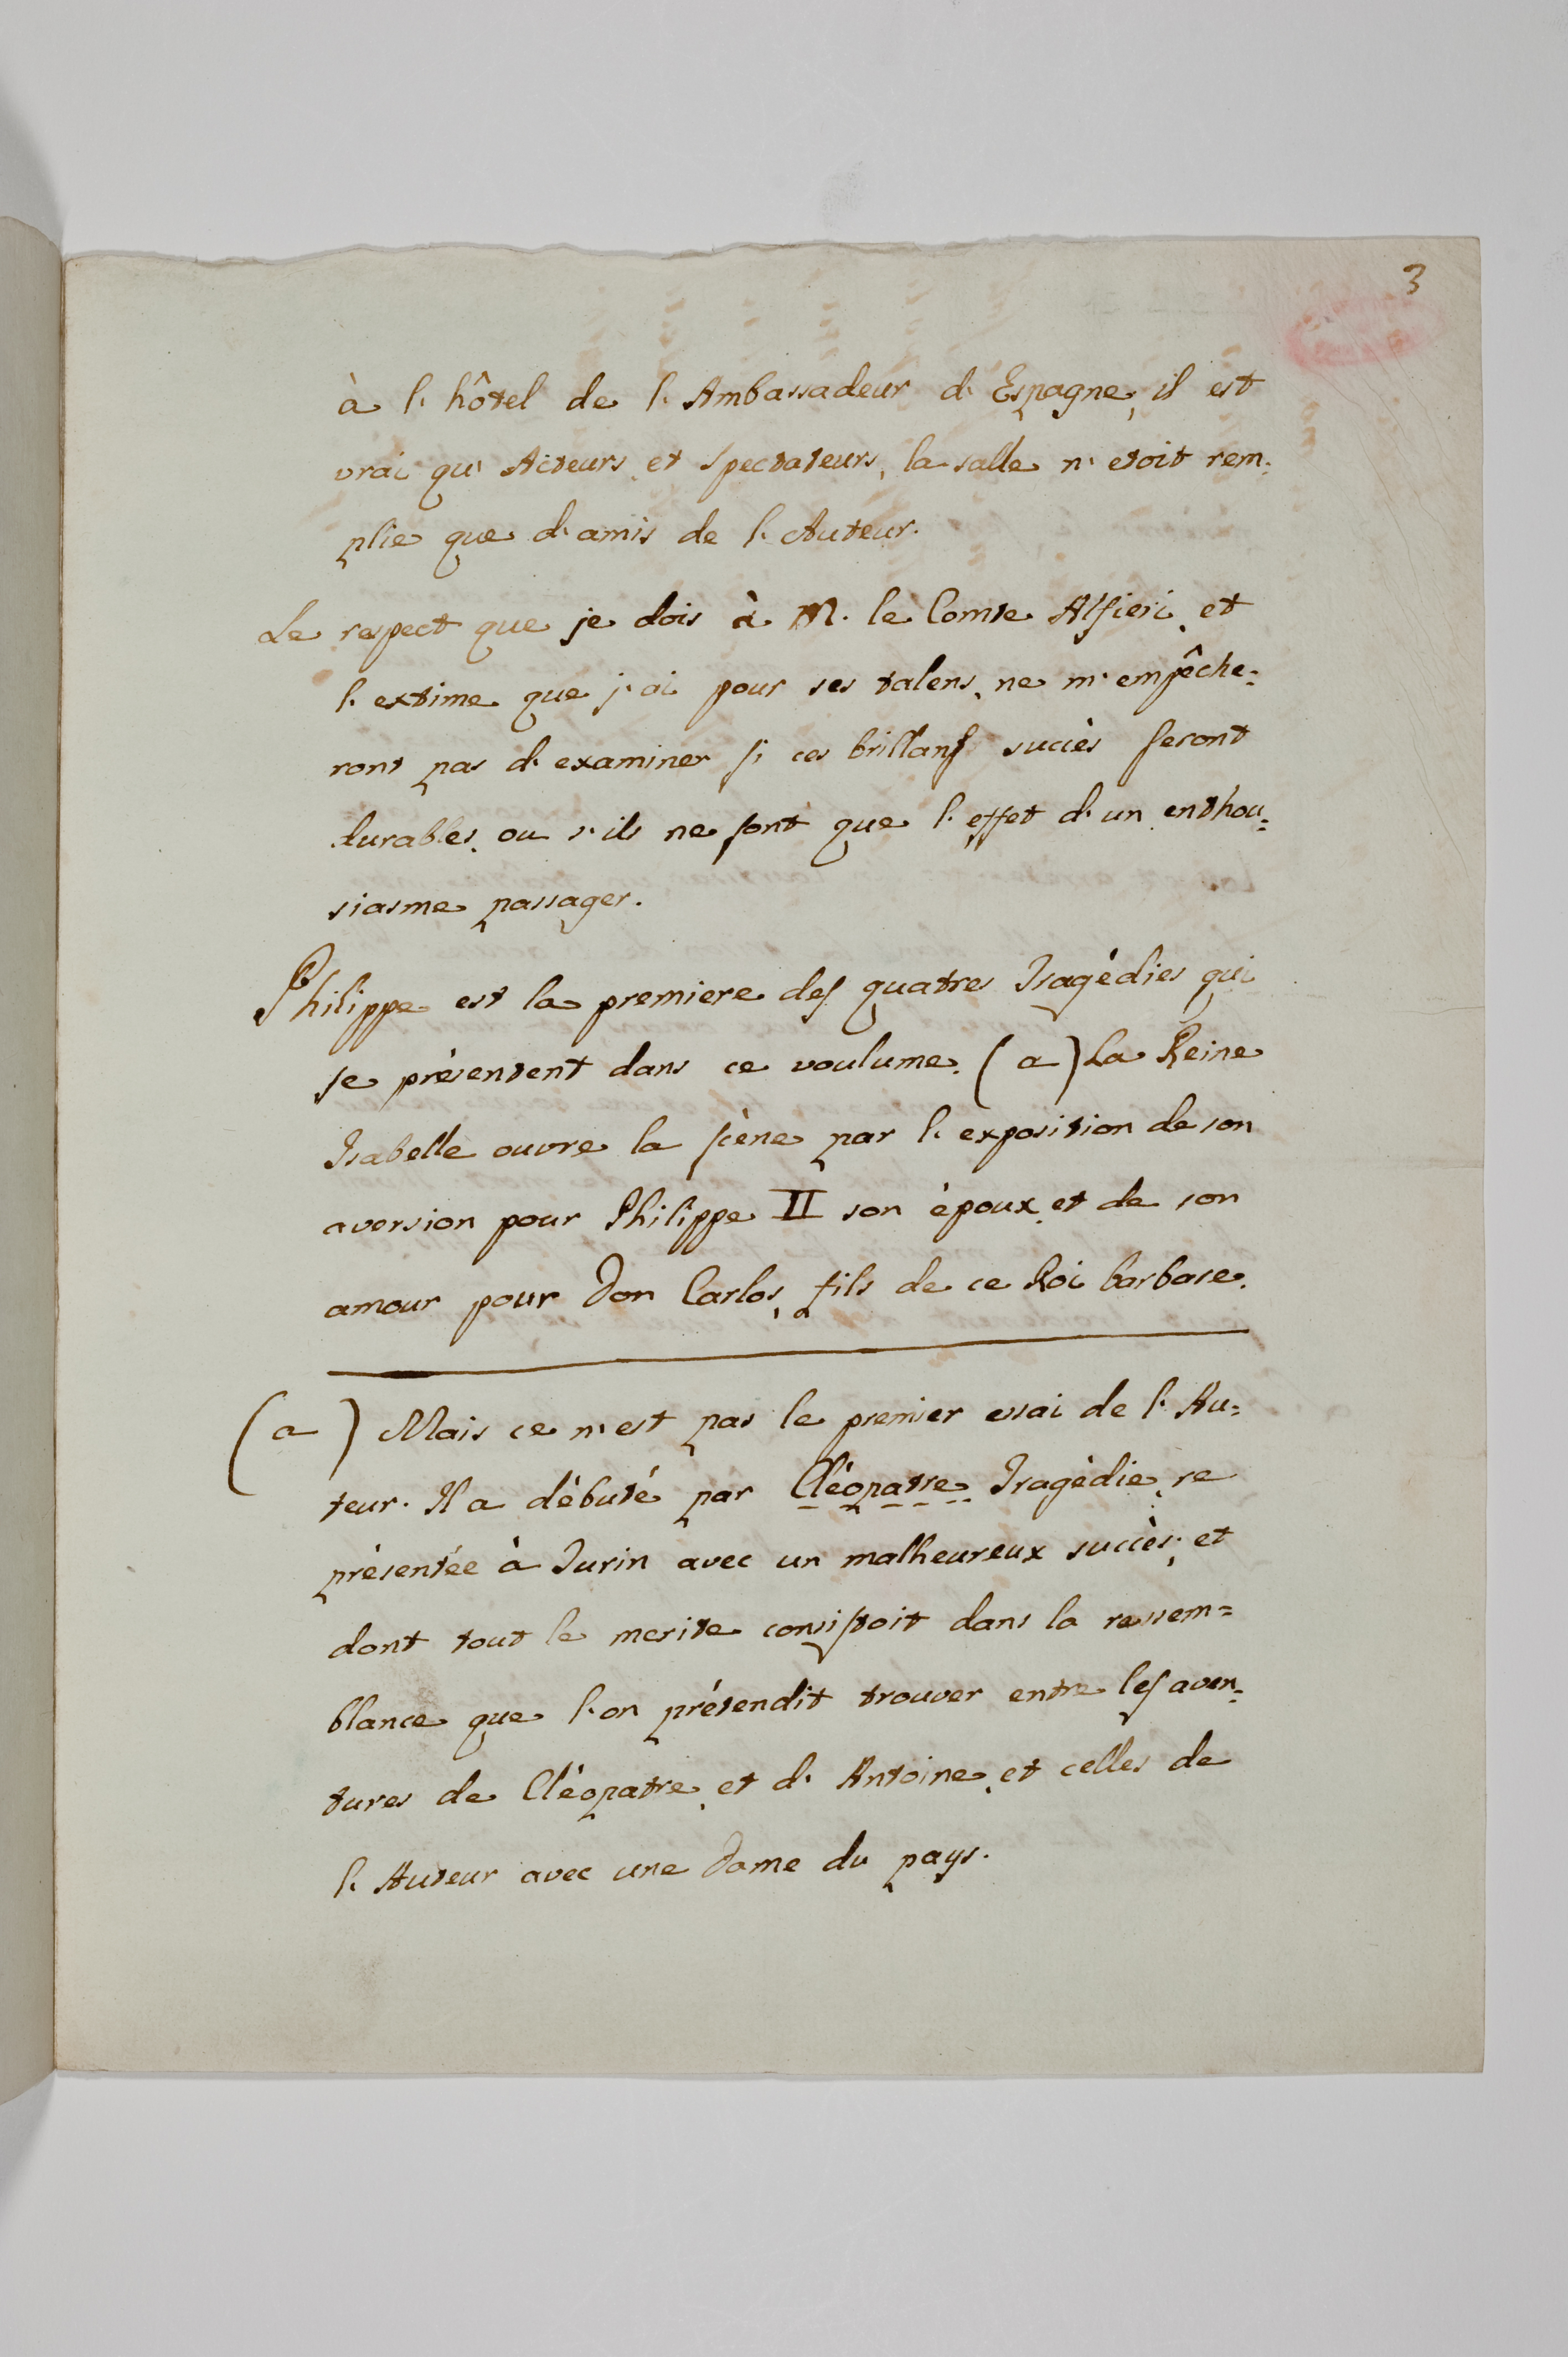 3
à l'hôtel de l'Ambassadeur d'Espagne, il est
vrai qu'Acteurs, et Spectateurs, la salle n'etoit rem=
plie que d'amis de l'Auteur.
Le respect que je dois à M. le Comte Alfieri, et
l'extime que j'ai pour ses talens, ne m'empêche=
ront pas d'examiner si ces brillans succès seront
durables, ou s'ils ne sont que l'effet d'un enthou=
siasme passager.
Philippe est la premiere des quatres Tragédies qui
se présentent dans ce voulume. (a) La Reine
Isabelle ouvre la scène par l'exposition de son
aversion pour Philippe II son époux, et de son
amour pour Don Carlos, fils de ce Roi barbare.
(a) Mais ce n'est pas le premier essai de l'Au=
teur. Il a débuté par Cléopatre, Tragédie, re
présentée à Turin avec un malheureux succès, et
dont tout le merite consistoit dans la ressem=
blance que l'on prétendit trouver entre les aven=
tures de Cléopatre, et d'Antoine, et celles de
l'Auteur avec une Dame du pays.